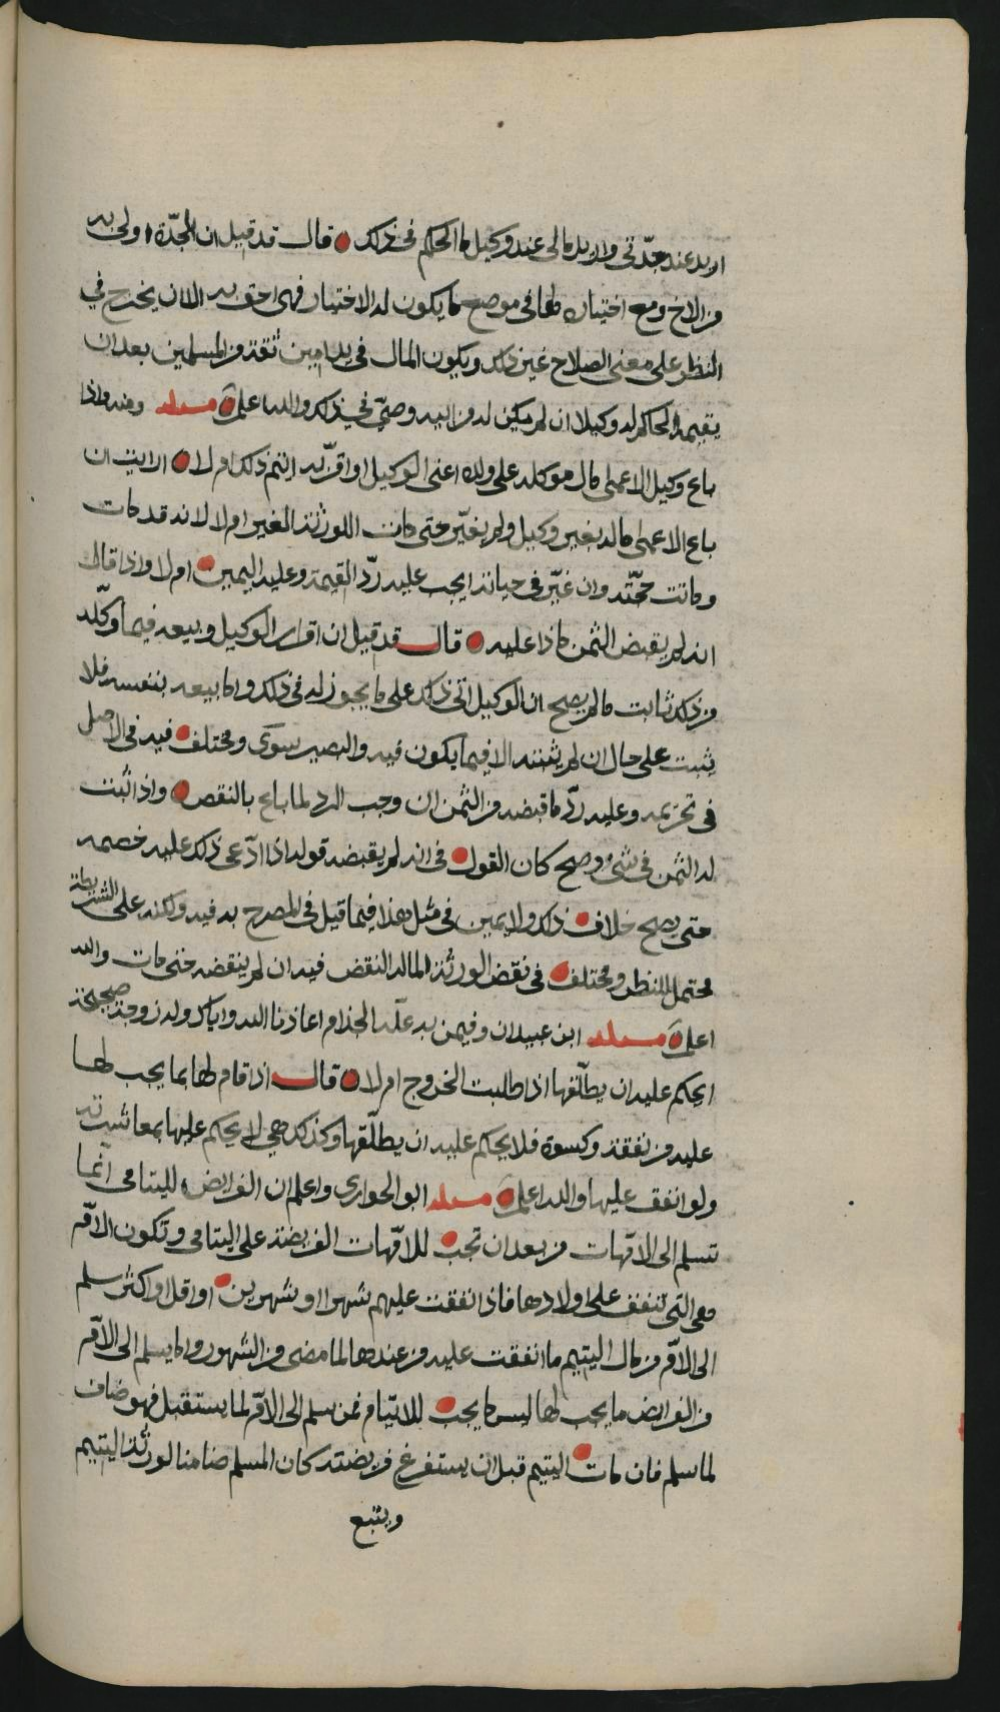 اريد عند جدّتي واريد مالي عند وكيل ما الحكم في ذلك قال قد قيل ان الجدّة اولى به
من الاخ ومع اختياره لها في موضع ما يكون له الاختيار فهي احق به الا ان يخرج في
النظر على معنى الصلاح غير ذلك ويكون المال في يد امين ثقة من المسلمين بعد ان
يقيمه الحاكم له وكيلا ان لم يكن له من ابيه وصيّ في ذلك والله اعلم مسئلة ومنه واذا
باع وكيل الاعمى مال موكله على ولده اعني الوكيل او اقرّ له ايتم ذلك ام لا ارايت ان
باع الاعمى ماله بغير وكيل ولم يغيّر حتى مات اللورثة الغير ام لا لانه قد مات
وماتت حجّته وان غيّر في حياته ايجب عليه ردّ القيمة وعليه اليمين ام لا واذا قال
انه لم يقبض الثمن ماذا عليه قال قد قيل ان اقرار الوكيل وبيعه فيما وكّله
من ذلك ثابت ما لم يصح ان الوكيل اتى ذلك على ما يجوز له في ذلك واما بيعه بنفسه فلا
يثبت على حال ان لم يثبته الا فيما يكون فيه والبصير سوى ومختلف فيه في الاصل
في تحريمه وعليه ردّ ما قبضه من الثمن ان وجب الرد لما باع بالنقص واذا ثبت
له الثمن في شيء وصح كان القول في انه لم يقبضه قوله اذا ادّعى ذلك عليه خصمه
حتى يصح خلاف ذلك ولا يمين في مثل هذا فيما قيل في المصرح به فيه ولكنه على الشريطة
محتمل للنظر ومختلف في نقض الورثة المال النقض فيه ان لم ينقضه حتى مات والله
اعلم مسئلة ابن عبيدان وفيمن به علّة الجذام اعاذنا الله واياك وله زوجة صحيحة
ايحكم عليه ان يطلّقها اذا طلبت الخروج ام لا قال اذا قام لها بما يجب لها
عليه من نفقة وكسوة فلا يحكم عليه ان يطلّقها وكذلك هي لا يحكم عليها بمعاشرته
ولو انفق عليها والله اعلم مسئلة ابو الحواري واعلم ان الفرايض لليتامى انما
تسلم الى الامّهات من بعد ان تجب للامّهات الفريضة على اليتامى وتكون الامّ
هي التي تنفق على اولادها فاذا انفقت عليهم شهرا او شهرين او اقل او اكثر سلم
الى الامّ من مال اليتيم ما انفقت عليه من عندها لما مضى من الشهور وما يسلم الى الامّ
من الفرايض ما يجب لها ليس ما يجب للايتام فمن سلم الى الامّ لما يستقبل فهو ضامن
لما سلم فان مات اليتيم قبل ان يستفرغ فريضته كان المسلم ضامنا لورثة اليتيم
ويتبع